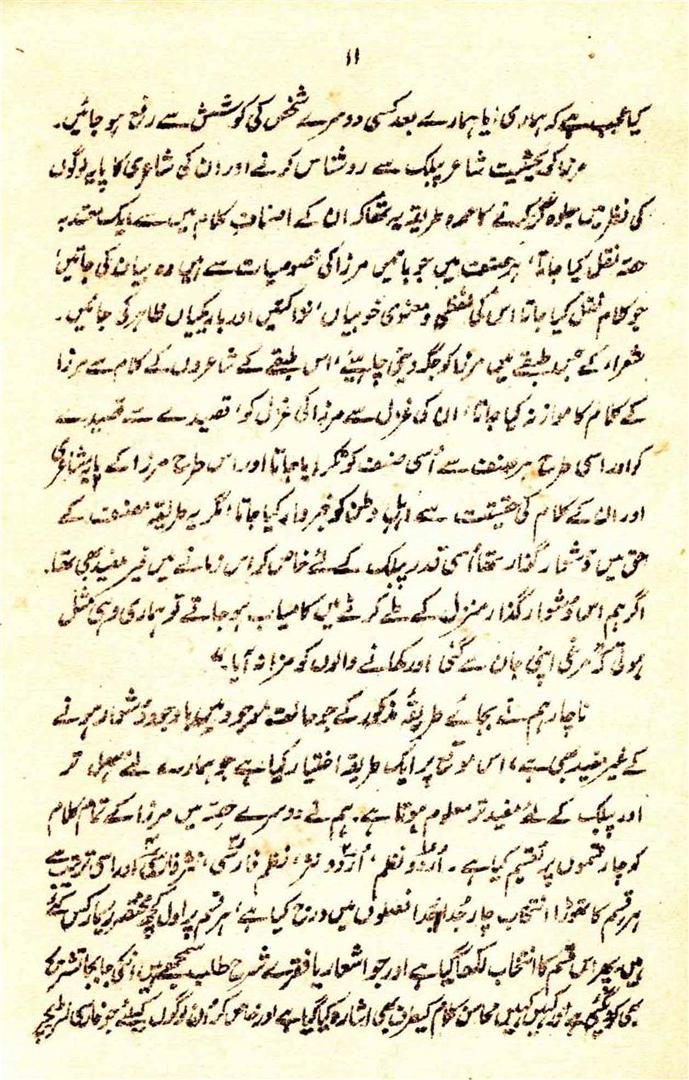 ۱۱
کیا عجب ہے کہ ہماری یا ہمارے بعد کسی دوسرے شخص کی کوشش سے رفع ہو جائیں۔
مرزا کو بحیثیت شاعر پبلک سے روشناس کرنے اور ان کی شاعری کا پایہ لوگوں
کی نظر میں جلوہ گر کرنے کا عمدہ طریقہ یہ تھا کہ ان کے اصناف کلام میں سے ایک معتد بہ
حصہ نقل کیا جاتا، ہر صنف میں جو باتیں مرزا کی خصوصیات سے ہیں وہ بیان کی جاتیں
جو کلام نقل کیا جاتا اس کی لفظی و معنوی خوبیاں، نزاکتیں اور باریکیاں ظاہر کی جائیں۔
شعراء کے جس طبقے میں مرزا کو جگہ دینی چاہیئے، اس طبقے کے شاعروں کے کلام سے مرزا
کے کلام کا موازنہ کیا جاتا، ان کی غزل سے مرزا کی غزل کو، قصیدے سے قصیدے
کو اور اسی طرح ہر صنف سے اُسی صنف کو ٹکرایا جاتا اور اس طرح مرزا کے پایہ شاعری
اور ان کے کلام کی حقیقت سے اہلِ وطن کو خبردار کیا جاتا، مگر یہ طریقہ مصنف کے
حق میں دُشوار گذار تھا اُسی قدر پبلک کے لئے خاص کر اس زمانے میں غیر مفید بھی تھا۔
اگر ہم اس دُشوار گذار منزل کے طے کرنے میں کامیاب ہو جاتے تو ہماری وہی مثل
ہوتی کہ مرغی اپنی جان سے گئی اور کھانے والوں کو مزا نہ آیا۔“
ناچار ہم نے بجائے طریقۂ مذکور کے جو حالت موجودہ میں باوجود دُشوار ہونے
کے غیر مفید بھی ہے، اس موقع پر ایک طریقہ اختیار کیا ہے جو ہمارے لئے سہل تر
اور پبلک کے لئے مفید تر معلوم ہوتا ہے۔ ہم نے دوسرے حصہ میں مرزا کے تمام کلام
کو چار قسموں پر تقسیم کیا ہے۔ اُردُو نظم، اُردُو نثر، نظم فارسی، نثر فارسی اور اسی ترتیب سے
ہر قسم کا تھوڑا انتخاب چار جُدا جُدا فصلوں میں درج کیا ہے، ہر قسم پر اول کچھ مختصر ریمارکس کئے
ہیں پھر اس قسم کا انتخاب لکھا گیا ہے اور جو اشعار یا فقرے شرح طلب سمجھے ہیں اُنکی جابجا تشریح
بھی کر دی گئی ہے اور کہیں کہیں محاسن کلام کیطرف بھی اشارہ کیا گیا ہے اور خاص کر اُن لوگوں کیلئے جو فارسی لٹریچر